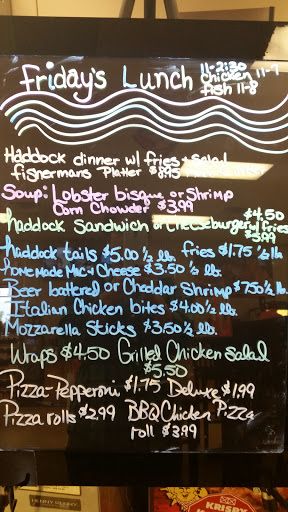 Friday's Lunch 11-2:30
chicken 11-7
fish 11-8
Haddock dinner w/ fries + salad
fishermans Platter $8.95
Soup: Lobster bisque or Shrimp
Corn Chowder $3.99
haddock Sandwich or cheeseburger w/ fries $4.50
$3.99
haddock tails $5.00 ½ lb. fries $1.75 ½ lb
homemade Mac + Cheese $3.50 ½ lb.
Beer battered or Cheddar Shrimp $7.50 ½ lb.
Italian Chicken bites $4.00 ½ lb.
Mozzarella Sticks $3.50 ½ lb.
Wraps $4.50 Grilled Chicken Salad
$5.50
Pizza-Pepperoni $1.75 Deluxe $1.99
Pizza rolls $2.99 BBQ Chicken Pizza
roll $3.99
KRISPY